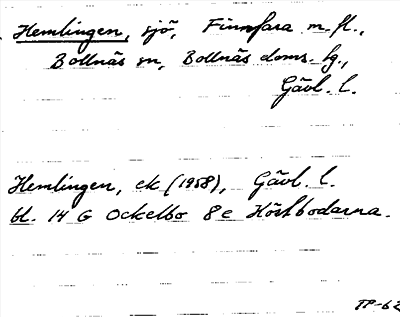 Hemlingen, sjö, Finnfara m.fl.,
Bollnäs sn, Bollnäs doms.hg.,
Gävl. l.
Hemlingen, ek (1958), Gävl. l.
bl. 14 G Ockelbo 8e Höstbodarna.
TP-62